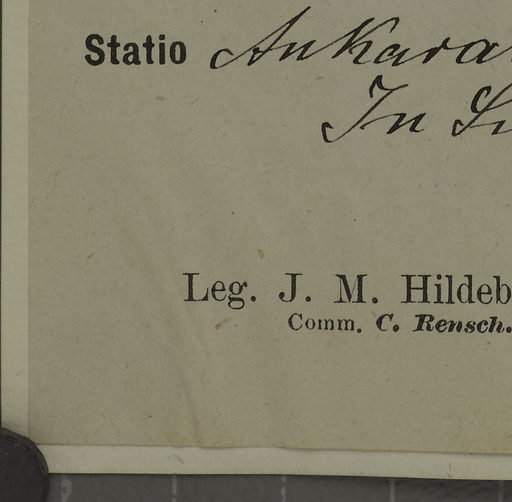 Statio Ankara
In
Leg. J. M. Hildeb
Comm. C. Rensch.